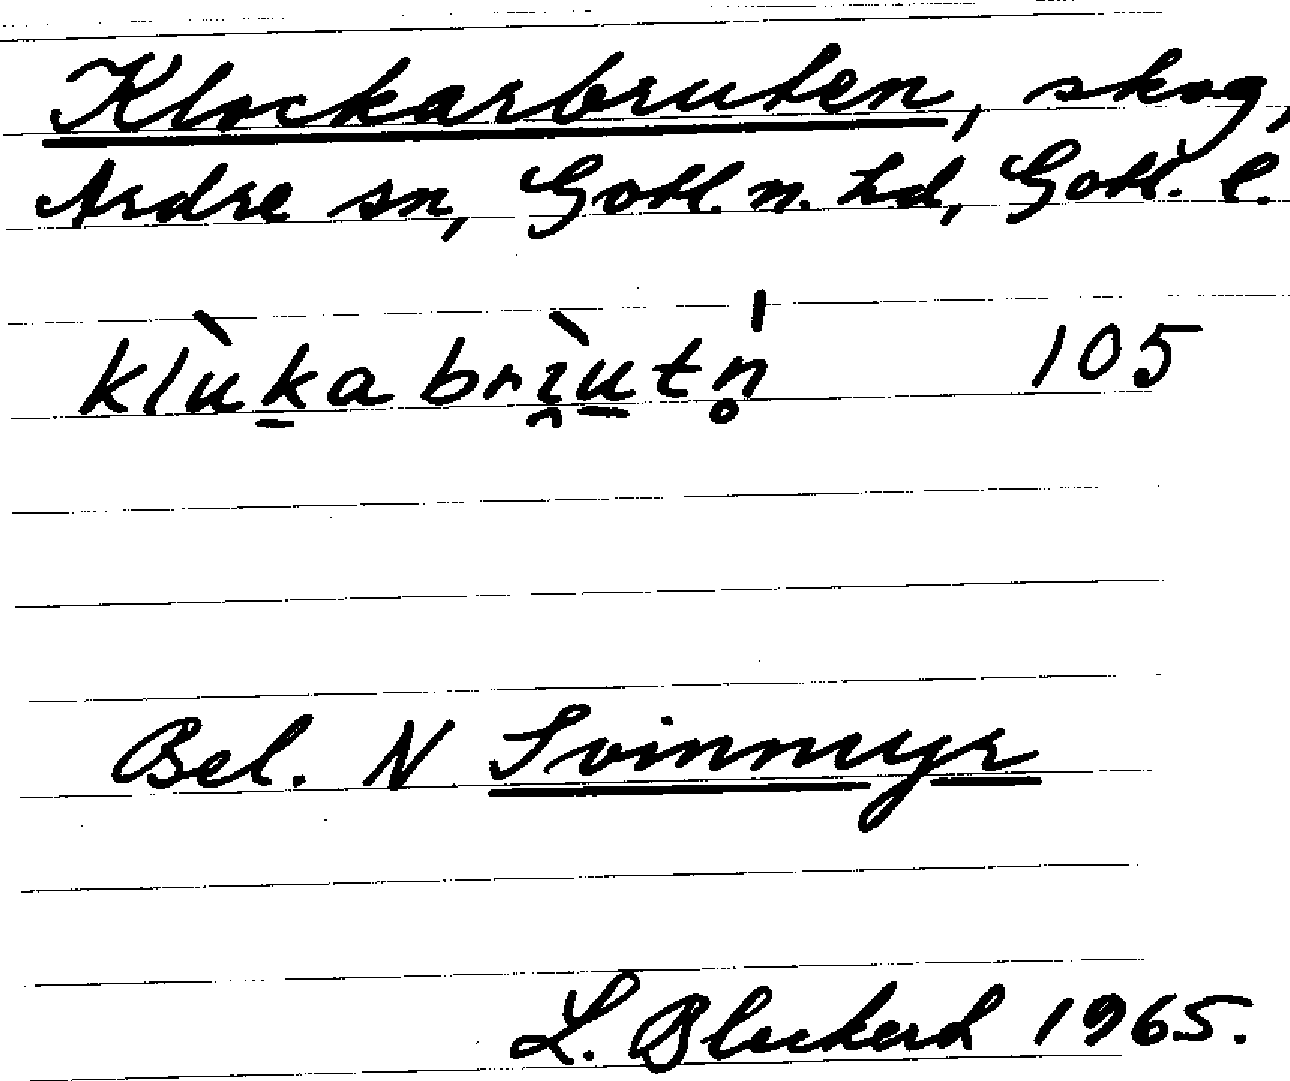 Klockarbruten, skog,
Ardre sn, Gotl. n. hd, Gotl. l.
klùk̠abrı̯̀u̠tn̥̍ 105
Bel. N Svinmyr
L. Bleckert 1965.